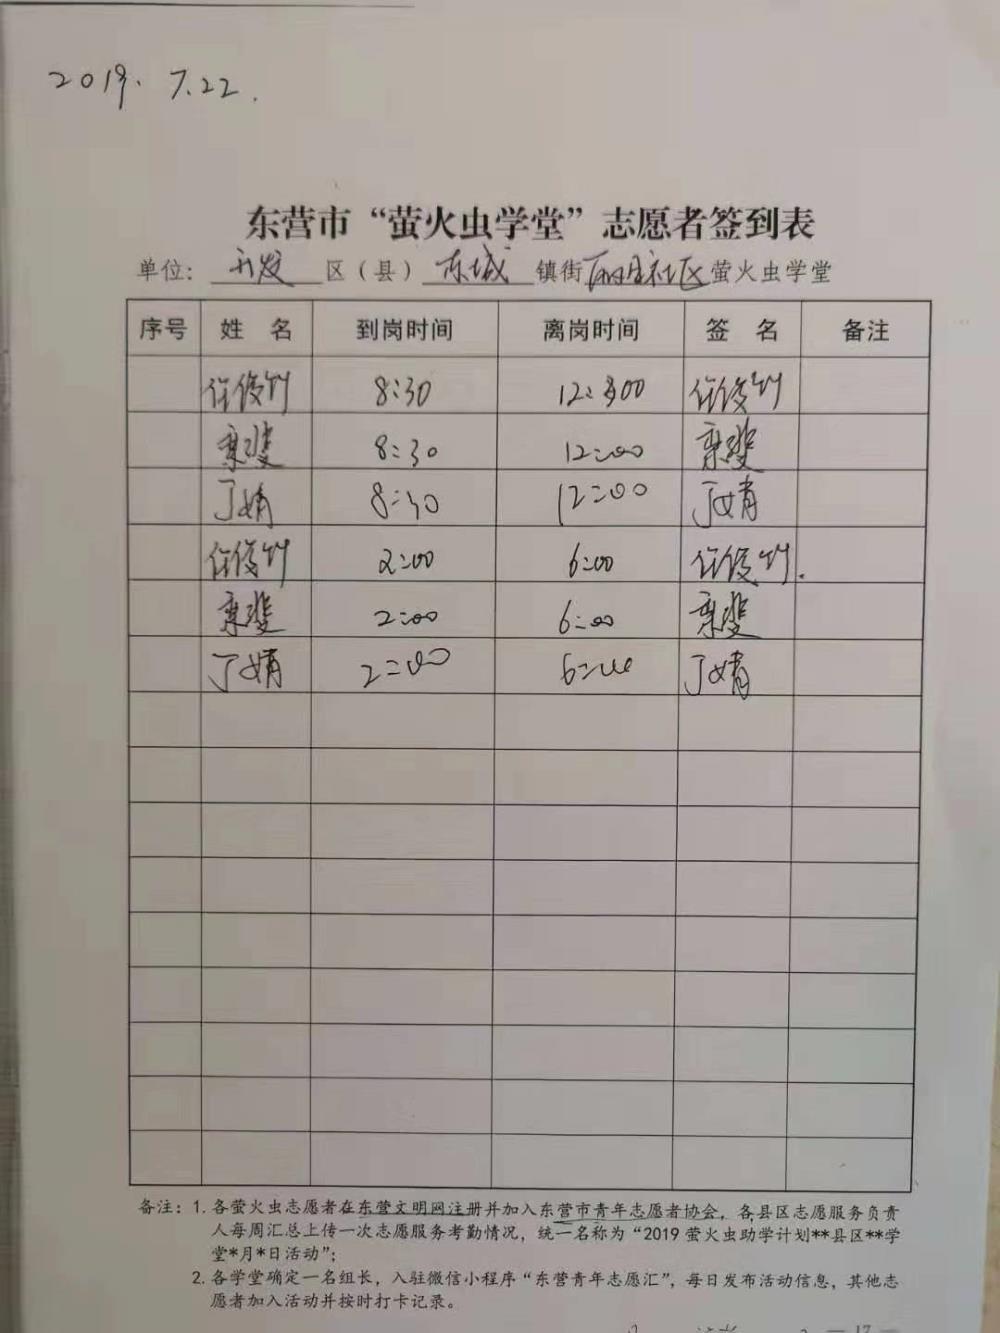 2019. 7.22.
东营市“萤火虫学堂”志愿者签到表
单位：开发区（县）东城镇街社区萤火虫学堂
序号 姓 名 到岗时间 离岗时间 签 名 备注
任俊竹 8:30 12:00 任俊竹
8:30 12:00
丁婧 8:30 12:00 丁婧
任俊竹 2:00 6:00 任俊竹.
2:00 6:00
丁婧 2:00 6:00 丁婧
备注：1. 各萤火虫志愿者在东营文明网注册并加入东营市青年志愿者协会，各县区志愿服务负责
人每周汇总上传一次志愿服务考勤情况，统一名称为“2019 萤火虫助学计划**县区**学
堂*月*日活动”；
2. 各学堂确定一名组长，入驻微信小程序“东营青年志愿汇”，每日发布活动信息，其他志
愿者加入活动并按时打卡记录。
— 17 —